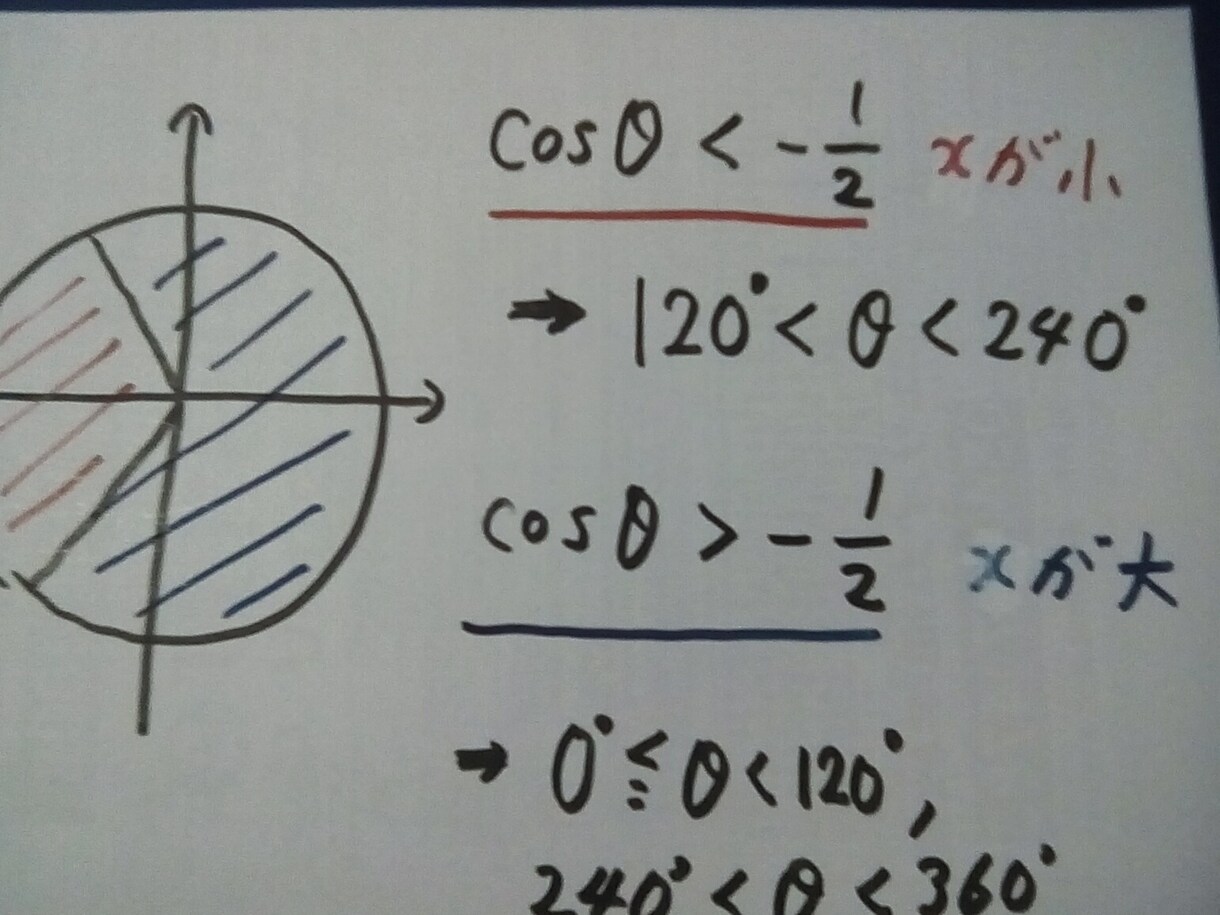 cosθ < -1/2 xが小
➡ 120° < θ < 240°
cosθ > -1/2 xが大
➡ 0° ≦ θ < 120°,
240° < θ < 360°